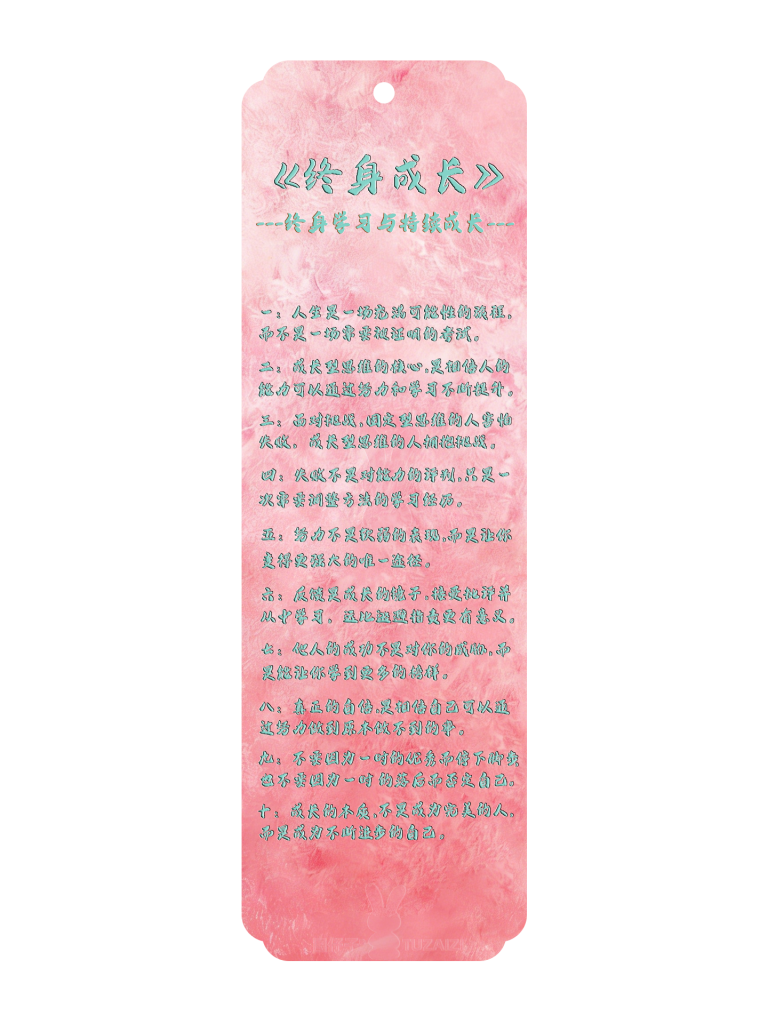 《终身成长》
---终身学习与持续成长---
一：人生是一场充满可能性的旅程，
而不是一场需要被证明的考试。
二：成长型思维的核心，是相信人的
能力可以通过努力和学习不断提升。
三：面对挑战，固定型思维的人害怕
失败， 成长型思维的人拥抱挑战。
四：失败不是对能力的评判，只是一
次需要调整方法的学习经历。
五：努力不是软弱的表现，而是让你
变得更强大的唯一途径。
六：反馈是成长的镜子，接受批评并
从中学习， 远比逃避指责更有意义。
七：他人的成功不是对你的威胁，而
是能让你学到更多的榜样。
八：真正的自信，是相信自己可以通
过努力做到原本做不到的事。
九：不要因为一时的优秀而停下脚步
也不要因为一时的落后而否定自己。
十：成长的本质，不是成为完美的人，
而是成为不断进步的自己。